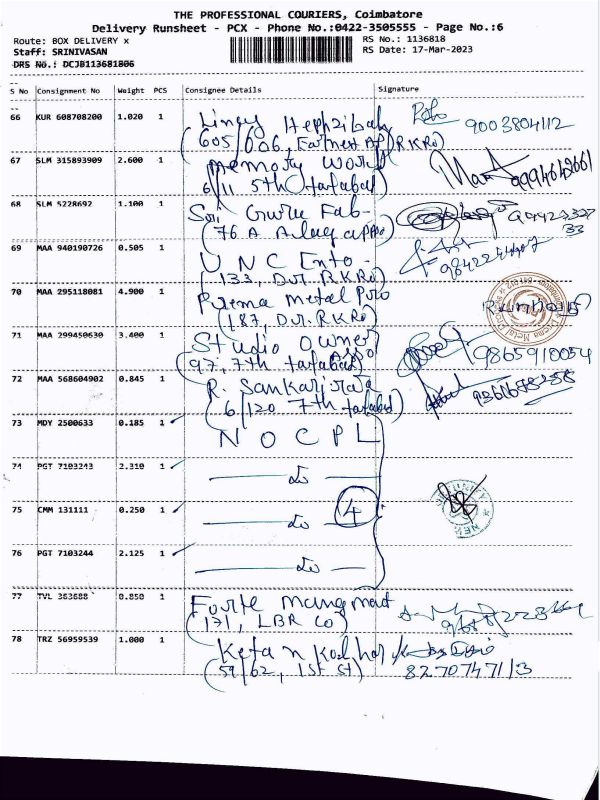 THE PROFESSIONAL COURIERS, Coimbatore
Delivery Runsheet - PCX - Phone No.:0422-3505555 - Page No.:6
Route: BOX DELIVERY x RS No.: 1136818
Staff: SRINIVASAN RS Date: 17-Mar-2023
DRS No.: DCJB113681806
S No Consignment No Weight PCS Consignee Details Signature
66 KUR 608708200 1.020 1 Lincy Hephzibah 9003804112
(605/606, Earnest Ap(RKRo)
67 SLM 315893909 2.600 1 memory world
(6/11 5th tatabad)
68 SLM 5228692 1.100 1 Sri Guru Fab-
(76 A Alagappa)
69 MAA 940190726 0.505 1 UNC Ento-
(133, Dr. RKRo)
70 MAA 295118081 4.900 1 Prema metal Pro
(187, Dr. RKRo)
71 MAA 299450630 3.400 1 Studio owner 9865910054
(97, 7th tatabad)
72 MAA 568604902 0.845 1 R. Sankari
(6/120 7th tatabad)
73 MDY 2500633 0.185 1 NOCPL
74 PGT 7103243 2.310 1 do
75 CMM 131111 0.250 1 do 4
76 PGT 7103244 2.125 1 do
77 TVL 363688 0.850 1 Forte mangment
(171, LBR Co)
78 TRZ 56959539 1.000 1 Ketan Kothari
(59/62, 1st St) 8270747113